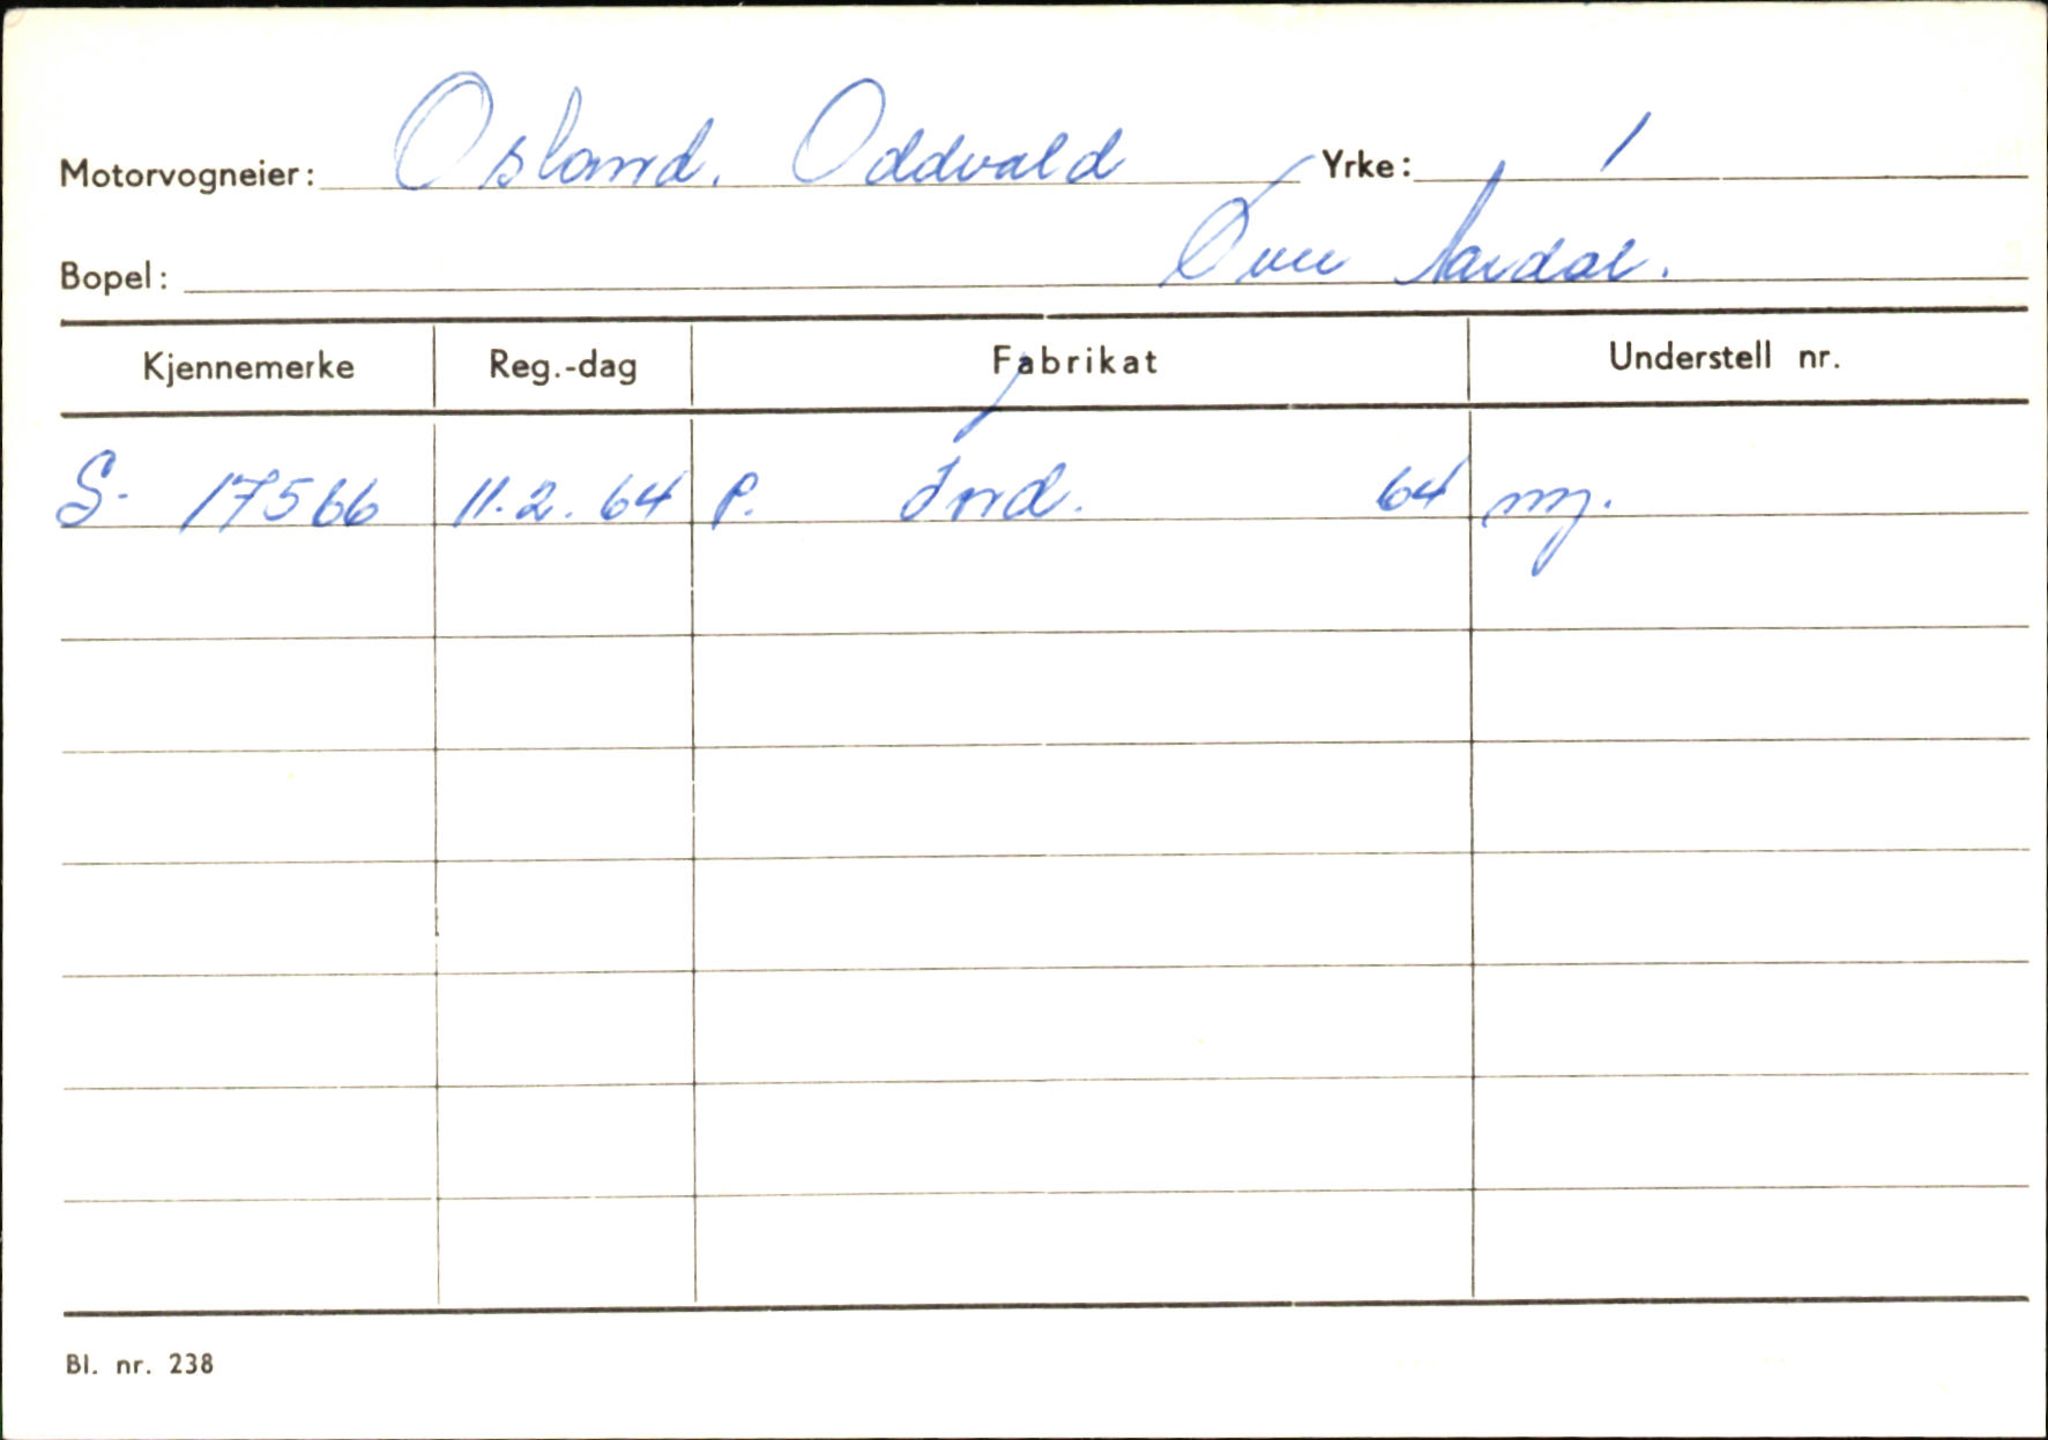 Motorvogneier: Osland. Oddvald Yrke: 1
Bopel: Øvre Aardal.
Kjennemerke Reg.-dag Fabrikat Understell nr.
S- 17566 11.2.64 P. Ford. 64 ny.
Bl. nr. 238